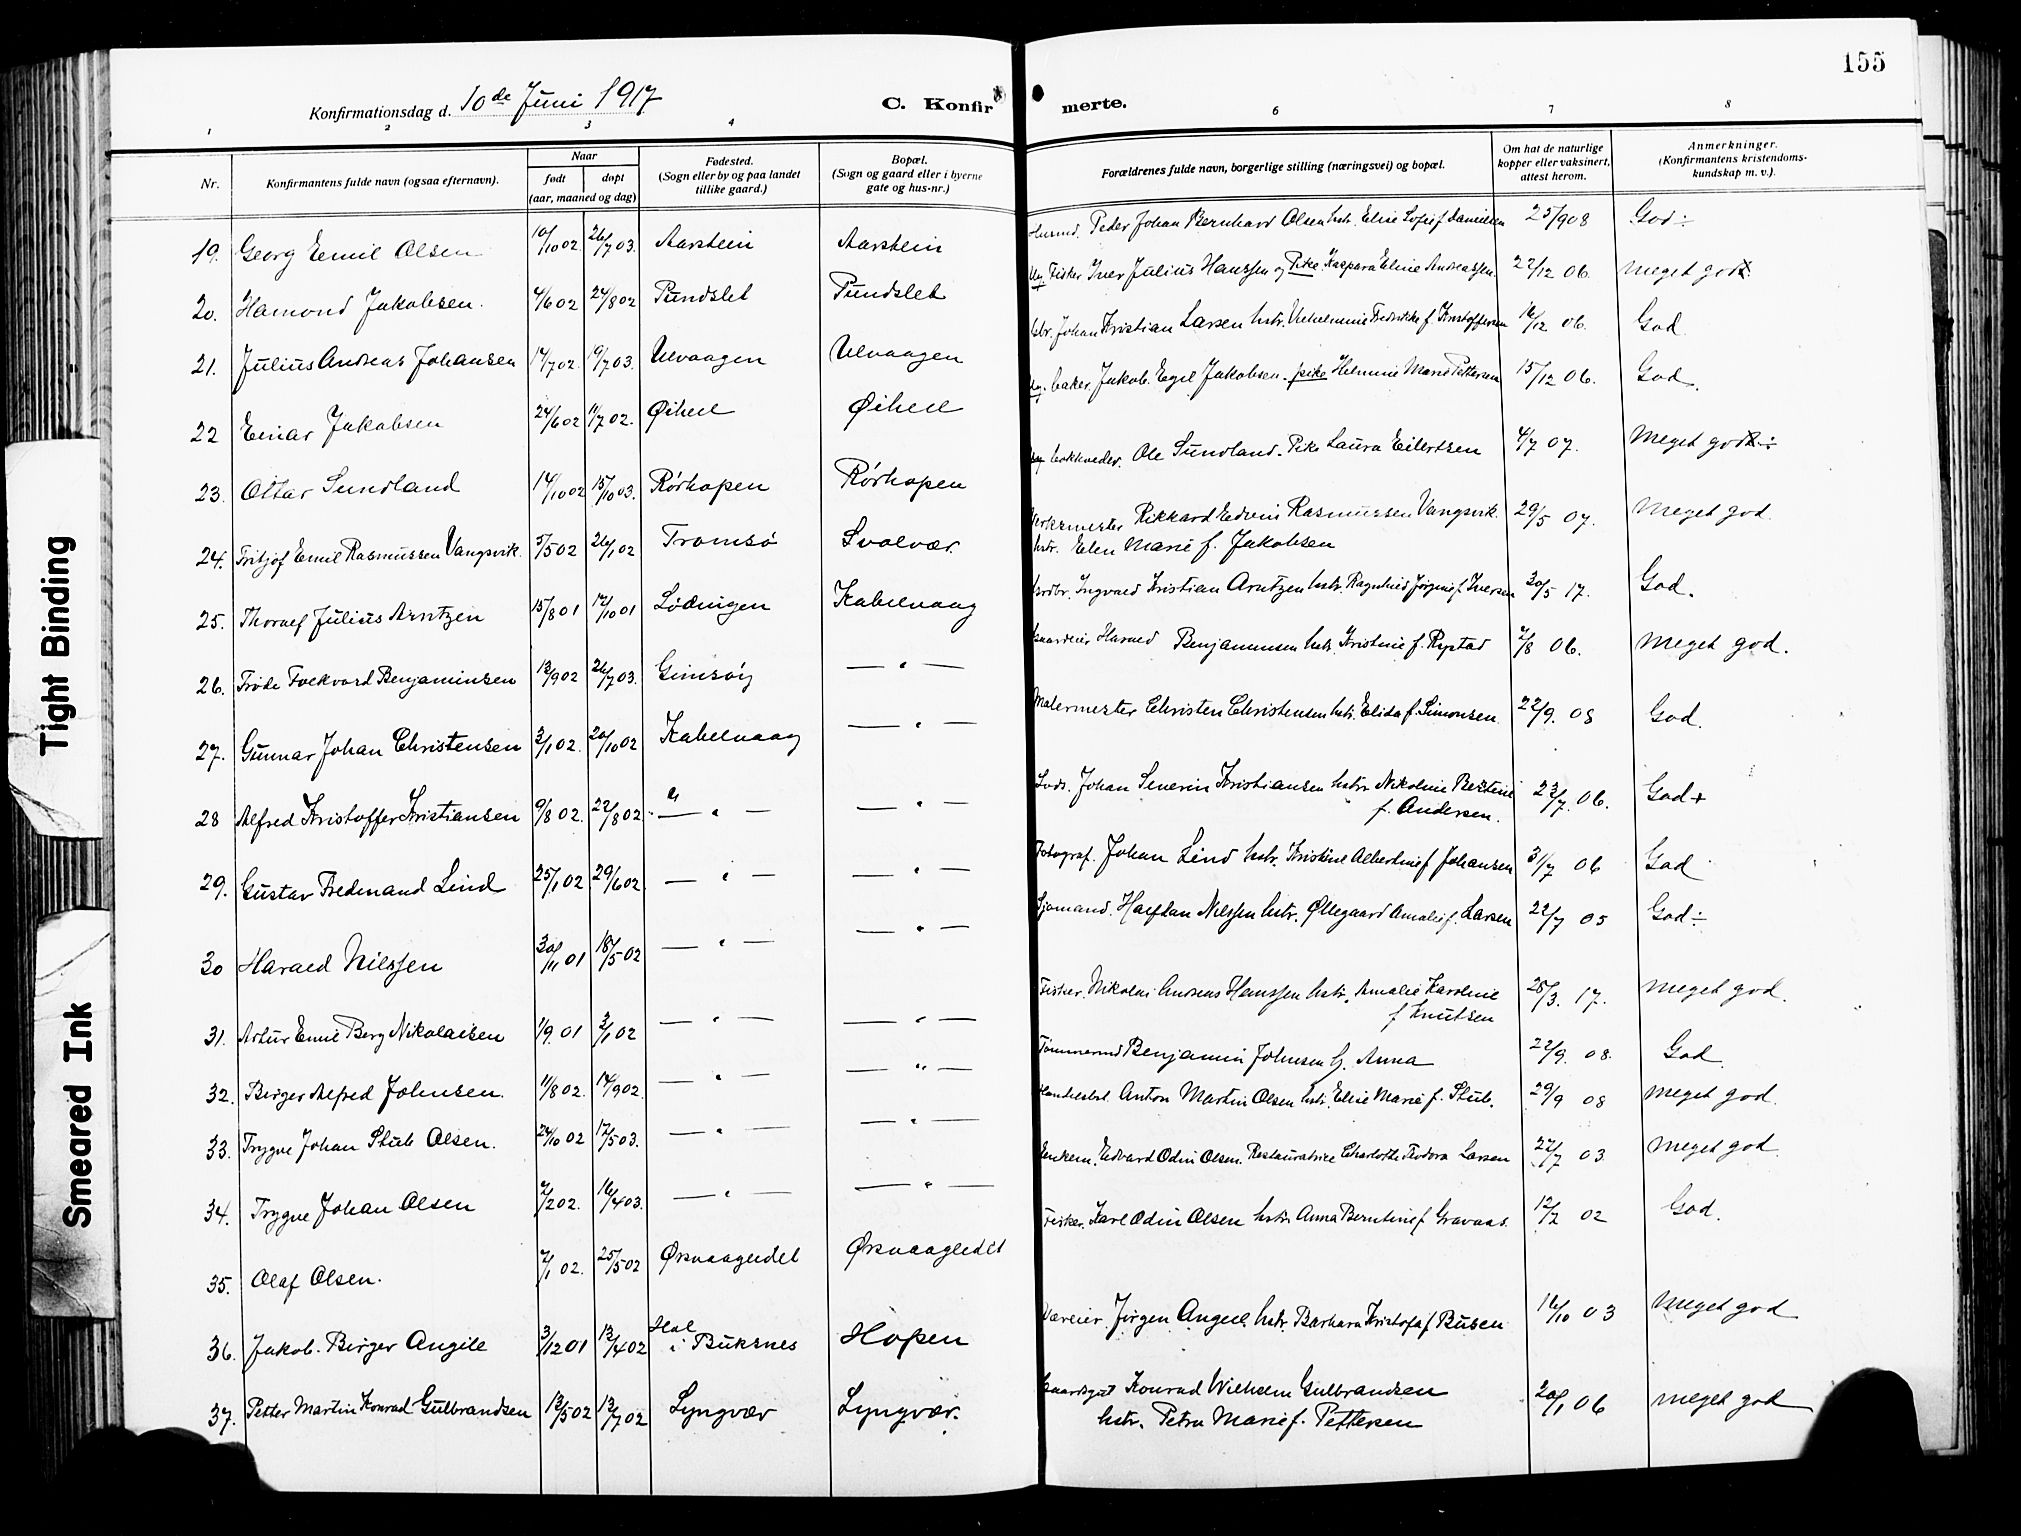 155
Konfirmationsdag d. 10de Juni 1917
C. Konfirmerte.
1 2 3 4 6 7 8
Nr.
Konfirmantens fulde navn (ogsaa efternavn).
Naar
født
døpt
(aar, maaned og dag)
Fødested.
(Sogn eller by og paa landet
tillike gaard.)
Bopæl.
(Sogn og gaard eller i byerne
gate og hus-nr.)
Forældrenes fulde navn, borgerlige stilling (næringsvei) og bopæl.
Om hat de naturlige
kopper eller vaksinert,
attest herom.
Anmerkninger.
(Konfirmantens kristendoms-
kundskap m. v.).
19. Georg Emil Olsen 10/10 02 26/7 03. Aarstein Aarstein Husmd. Peder Johan Bernhard Olsen hstr. Elise Sofie f Danielsen 25/9 08 God ÷
20. Hamond Jakobsen. 4/6 02 24/8 02 Pundslet Pundslet Ug. Fisker Iver Julius Hanssen og Pike Kaspara Eline Andreassen. 27/12 06. Meget god
21. Julius Andreas Johansen 14/7 02. 19/7 03. Ulvaagen Ulvaagen Johan Kristian Larsen hstr. Vilhelmine Fredrikke f. Kristoffersen 16/12 06. God
22 Einar Jakobsen 24/6 02 11/7 02. Øihell Øihell Ug. baker. Jakob Egil Jakobsen. pike Helmine Marie Pettersen 15/12 06. God.
23. Ottar Sundland 14/10 02 15/10 03. Rørhopen Rørhopen Ole Sundland. Pike Laura Eilertsen 4/7 07. Meget god ÷
24. Fritjof Emil Rasmussen Vangsvik. 5/5 02 26/1 02 Tromsø Svolvær Verksmester Rikkard Edvin Rasmussen Vangsvik
hstr. Elen Marie f. Jakobsen 29/5 07. Meget god.
25. Thoralf Julius Arntzen 15/8 01 17/10 01 Lødingen Kabelvaag Jordbr. Ingvald Kristian Arntzen hstr. Ragnhild Jørgine f. Iversen 30/5 17. God.
26. Frøde Folkvard Benjaminsen 13/9 02 26/7 03. Gimsøy — " — Gaardeier Harald Benjaminsen hstr. Kristine f. Rystad 7/8 06. Meget god.
27. Gunnar Johan Christensen 3/1 02. 20/10 02 Kabelvaag — " — Malermester Christen Christensen hstr. Elida f. Simonsen 22/9. 08 God.
28 Alfred Kristoffer Kristiansen 9/8 02. 22/8 02 — " — — " — Lods. Johan Severin Kristiansen hstr. Nikoline Bertine
f. Andersen. 23/7. 06. God +
29. Gustav Ferdinand Lind 25/1 02 29/6 02. — " — — " — Fotograf. Johan Lind hstr. Kristine Albertine f Johansen 31/7 06 God
30 Harald Nilssen 30/11 01 18/5 02 — " — — " — Sjømand. Halfdan Nilssen hstr. Øllegaard Amalie f. Larsen 22/7 05 God ÷
31. Artur Emil Berg Nikolaisen 1/9 01 3/1 02 — " — — " — Fisker. Nikolai Andreas Hanssen hstr. Amalie Karoline
f Knutsen 28/3. 17. Meget god.
32. Birger Alfred Johnsen. 11/8 02. 14/9 02. — " — — " — Tømmermd Benjamin Johnsen h. Anna 22/9. 08. God
33. Trygve Johan Stub Olsen. 24/10 02 17/5 03. — " — — " — Anton Martin Olsen hstr. Elise Marie f. Stub. 29/9 08 Meget god.
34. Trygve Johan Olsen 7/2 02. 16/4 03. — " — — " — Edvard Odin Olsen. Restauratrice Charlotte Teodora Larsen 27/7 03 Meget god
35. Olaf Olsen. 7/1 02. 25/5 02 Ørsvaageidet Ørsvaageidet Fisker. Karl Odin Olsen hstr. Anna Berntine f Gravaas. 12/2 02 God.
36. Jakob Birger Angell 3/12 01 13/4 02 Hol
i Buksnes Hopen Væreier Jørgen Angell hstr. Barbara Kristofa f Busen 16/10 03 Meget god
37. Petter Martin Konrad Gulbrandsen 13/5 02 13/7 02 Lyngvær Lyngvær. Gaardsgut Konrad Wilhelm Gulbrandsen
hstr. Petra Marie f. Pettersen 20/1 06 meget god
Tight Binding
Smeared Ink